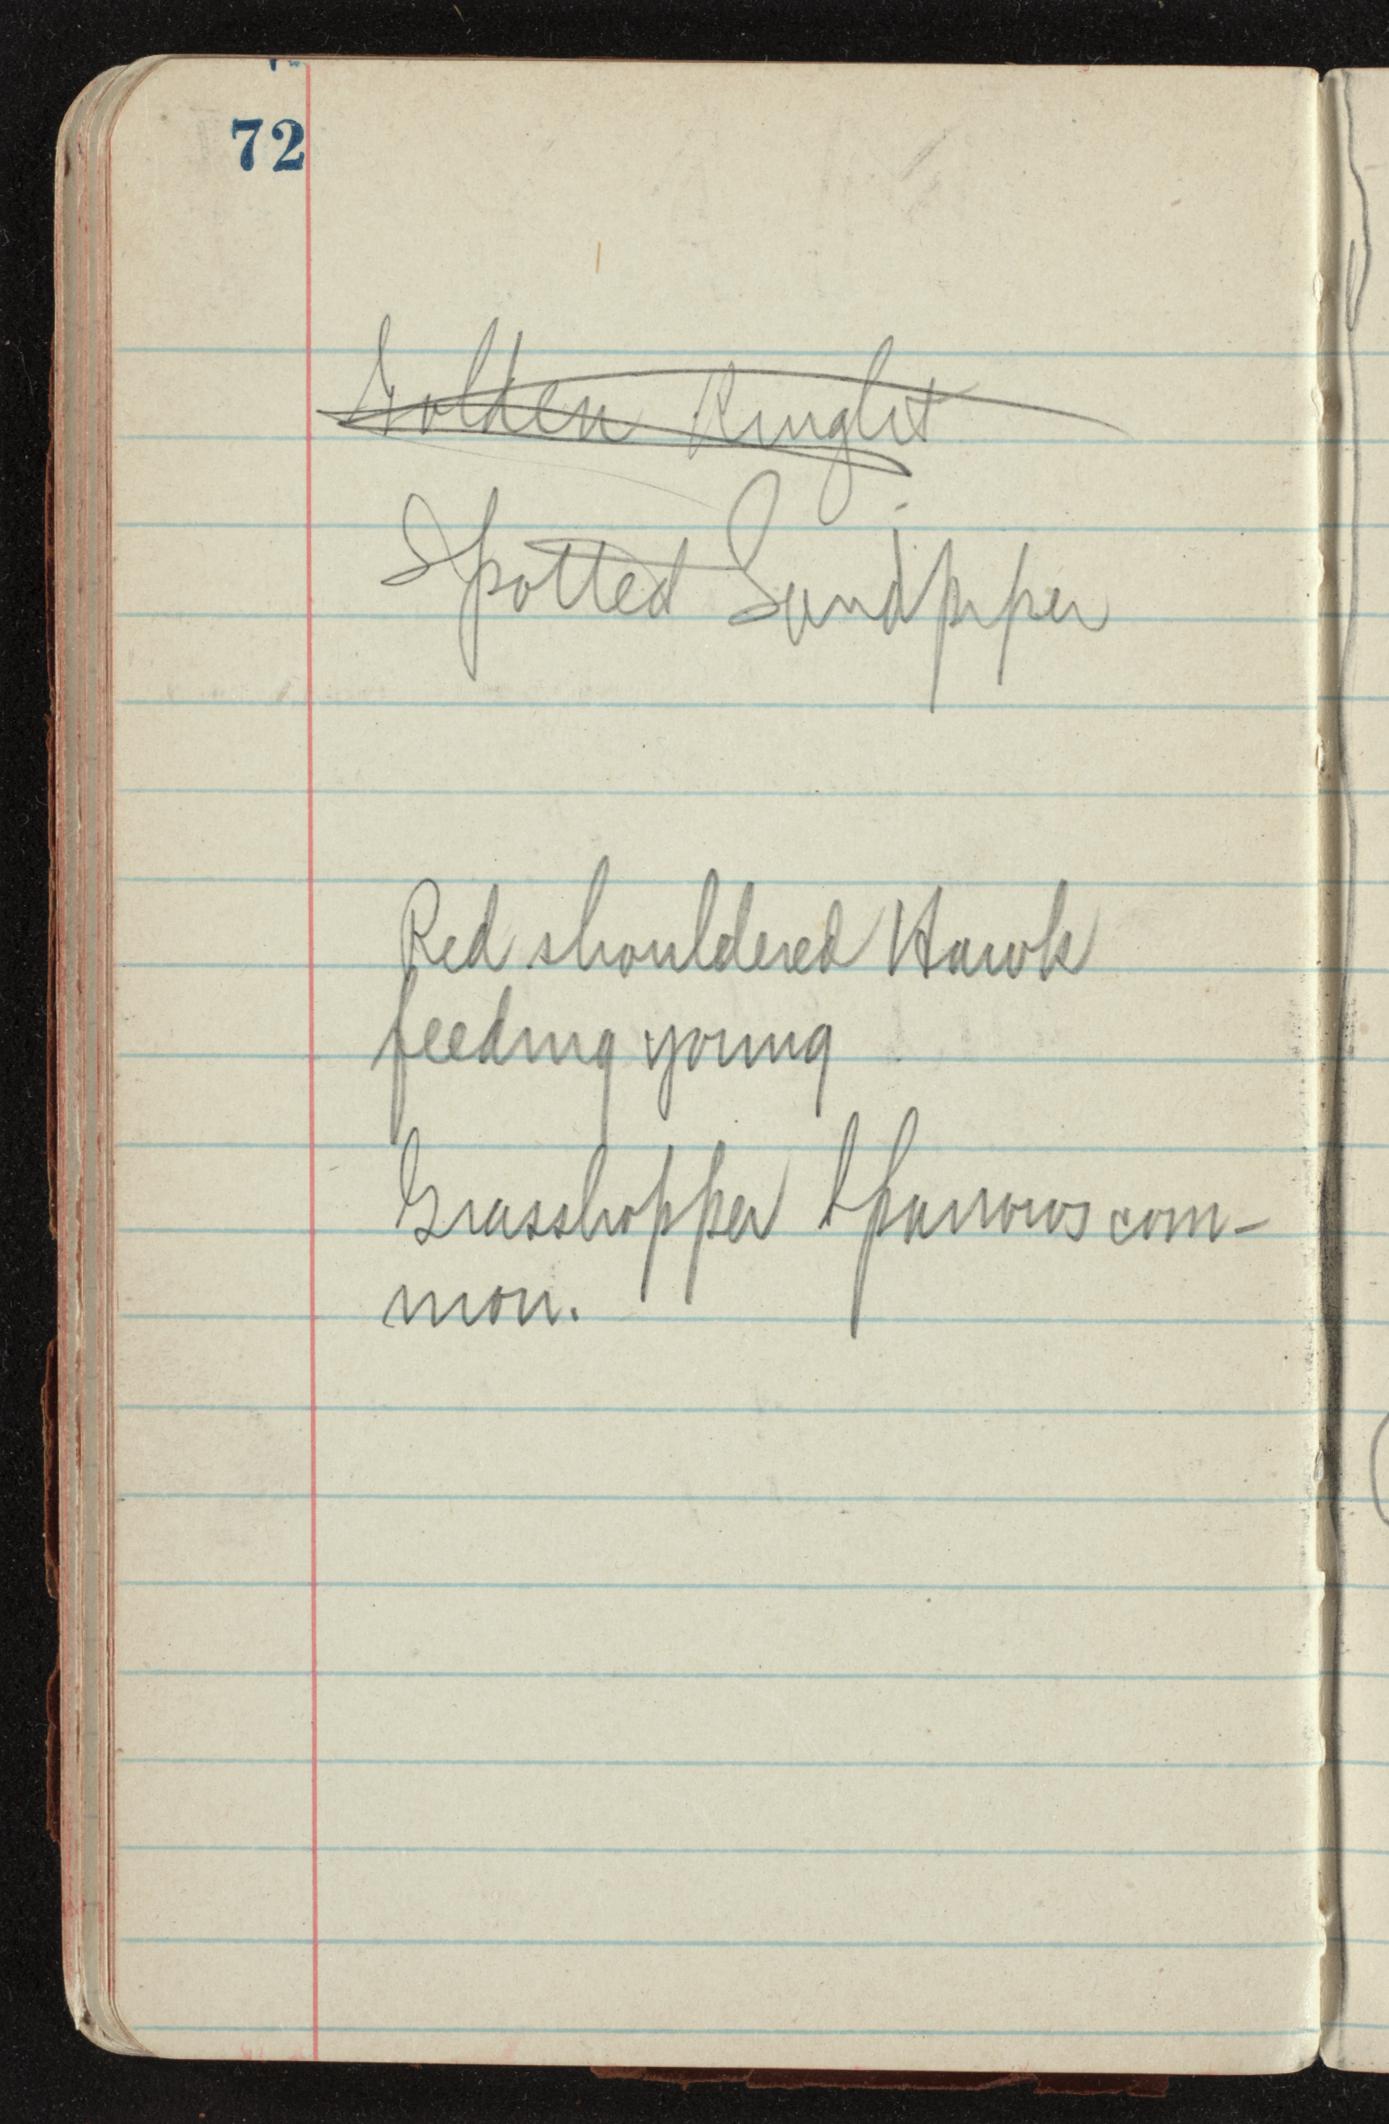 72
Golden Kinglet
Spotted Sandpiper
Red shouldered Hawk
feeding young
Grasshopper Sparrows com-
mon.